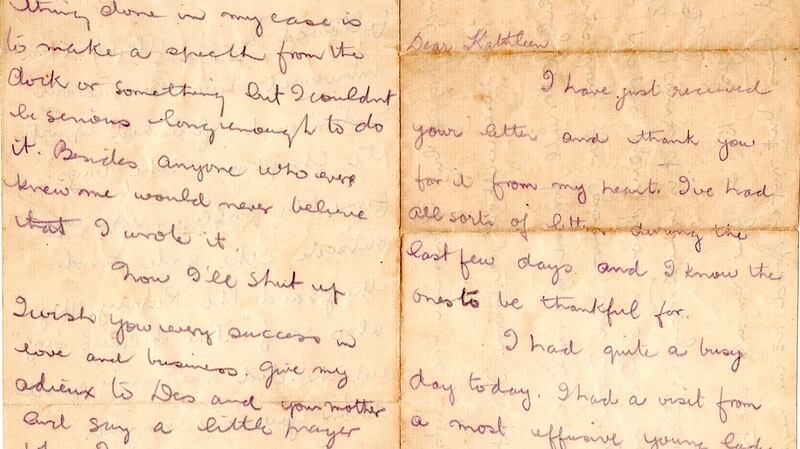 thing done in my case is
to make a speech from the
dock or something but I couldn't
be serious long enough to do
it. Besides anyone who ever
knew me would never believe
that I wrote it.
Now I'll shut up
I wish you every success in
love and business. Give my
adieux to Des and your mother
and say a little prayer
Dear Kathleen
I have just received
your letter and thank you
for it from my heart. I've had
all sorts of during the
last few days and I know the
ones to be thankful for.
I had quite a busy
day today. I had a visit from
a most effusive young lady